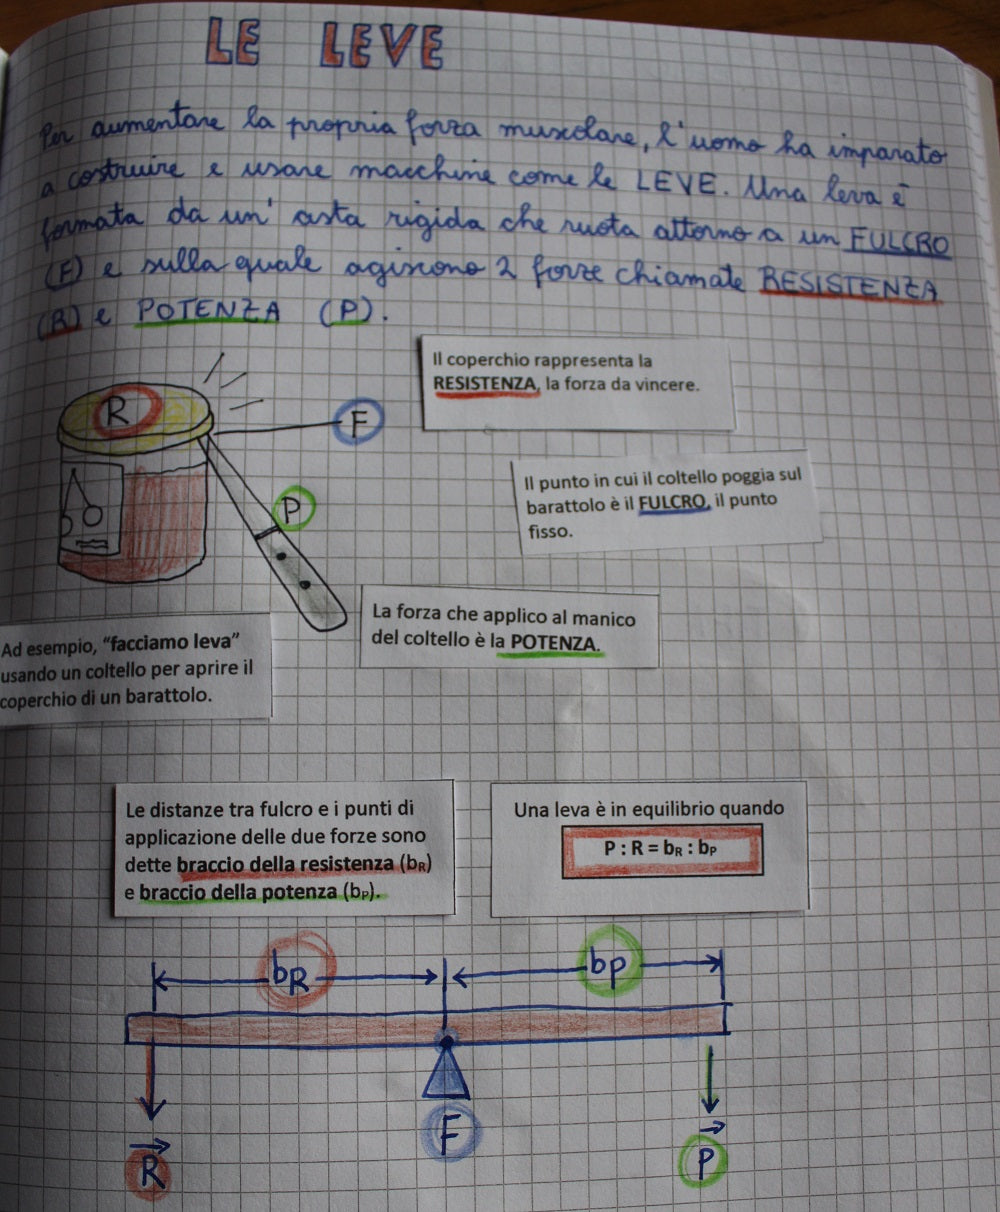 LE LEVE
Per aumentare la propria forza muscolare, l'uomo ha imparato
a costruire e usare macchine come le LEVE. Una leva è
formata da un' asta rigida che ruota attorno a un FULCRO
(F) e sulla quale agiscono 2 forze chiamate RESISTENZA
(R) e POTENZA (P).
Il coperchio rappresenta la
RESISTENZA, la forza da vincere.
R
F
Il punto in cui il coltello poggia sul
barattolo è il FULCRO, il punto
fisso.
P
La forza che applico al manico
del coltello è la POTENZA.
Ad esempio, “facciamo leva”
usando un coltello per aprire il
coperchio di un barattolo.
Le distanze tra fulcro e i punti di
applicazione delle due forze sono
dette braccio della resistenza (bR)
e braccio della potenza (bP).
Una leva è in equilibrio quando
P : R = bR : bP
bR
bP
R
F
P